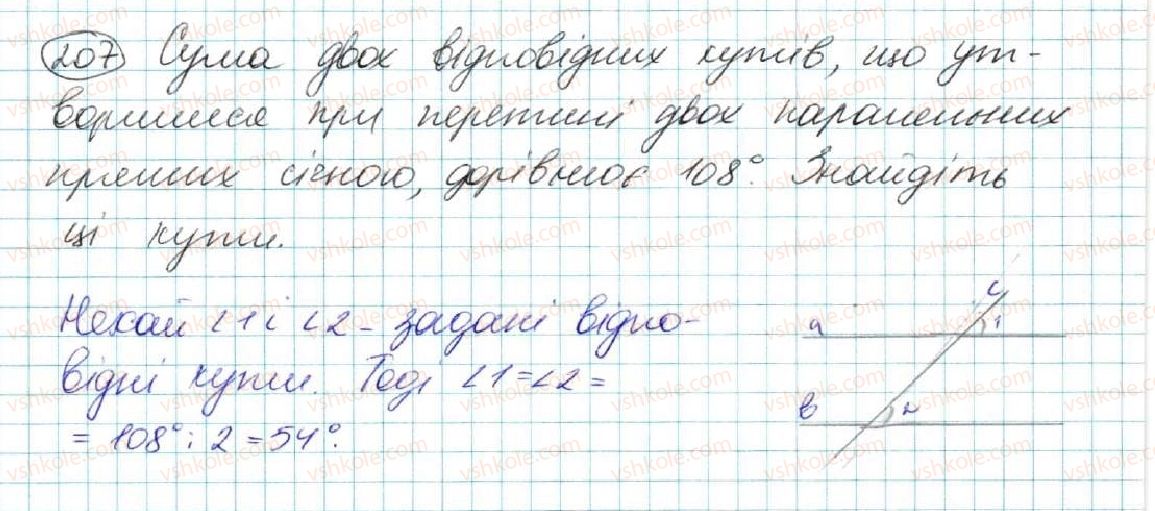 207 Сума двох відповідних кутів, що ут-
ворилися при перетині двох паралельних
прямих січною, дорівнює 108°. Знайдіть
ці кути.
Нехай ∠1 і ∠2 - задані відпо-
відні кути. Тоді ∠1=∠2=
= 108° : 2 = 54°.
c
a 1
b 2
vshkole.com